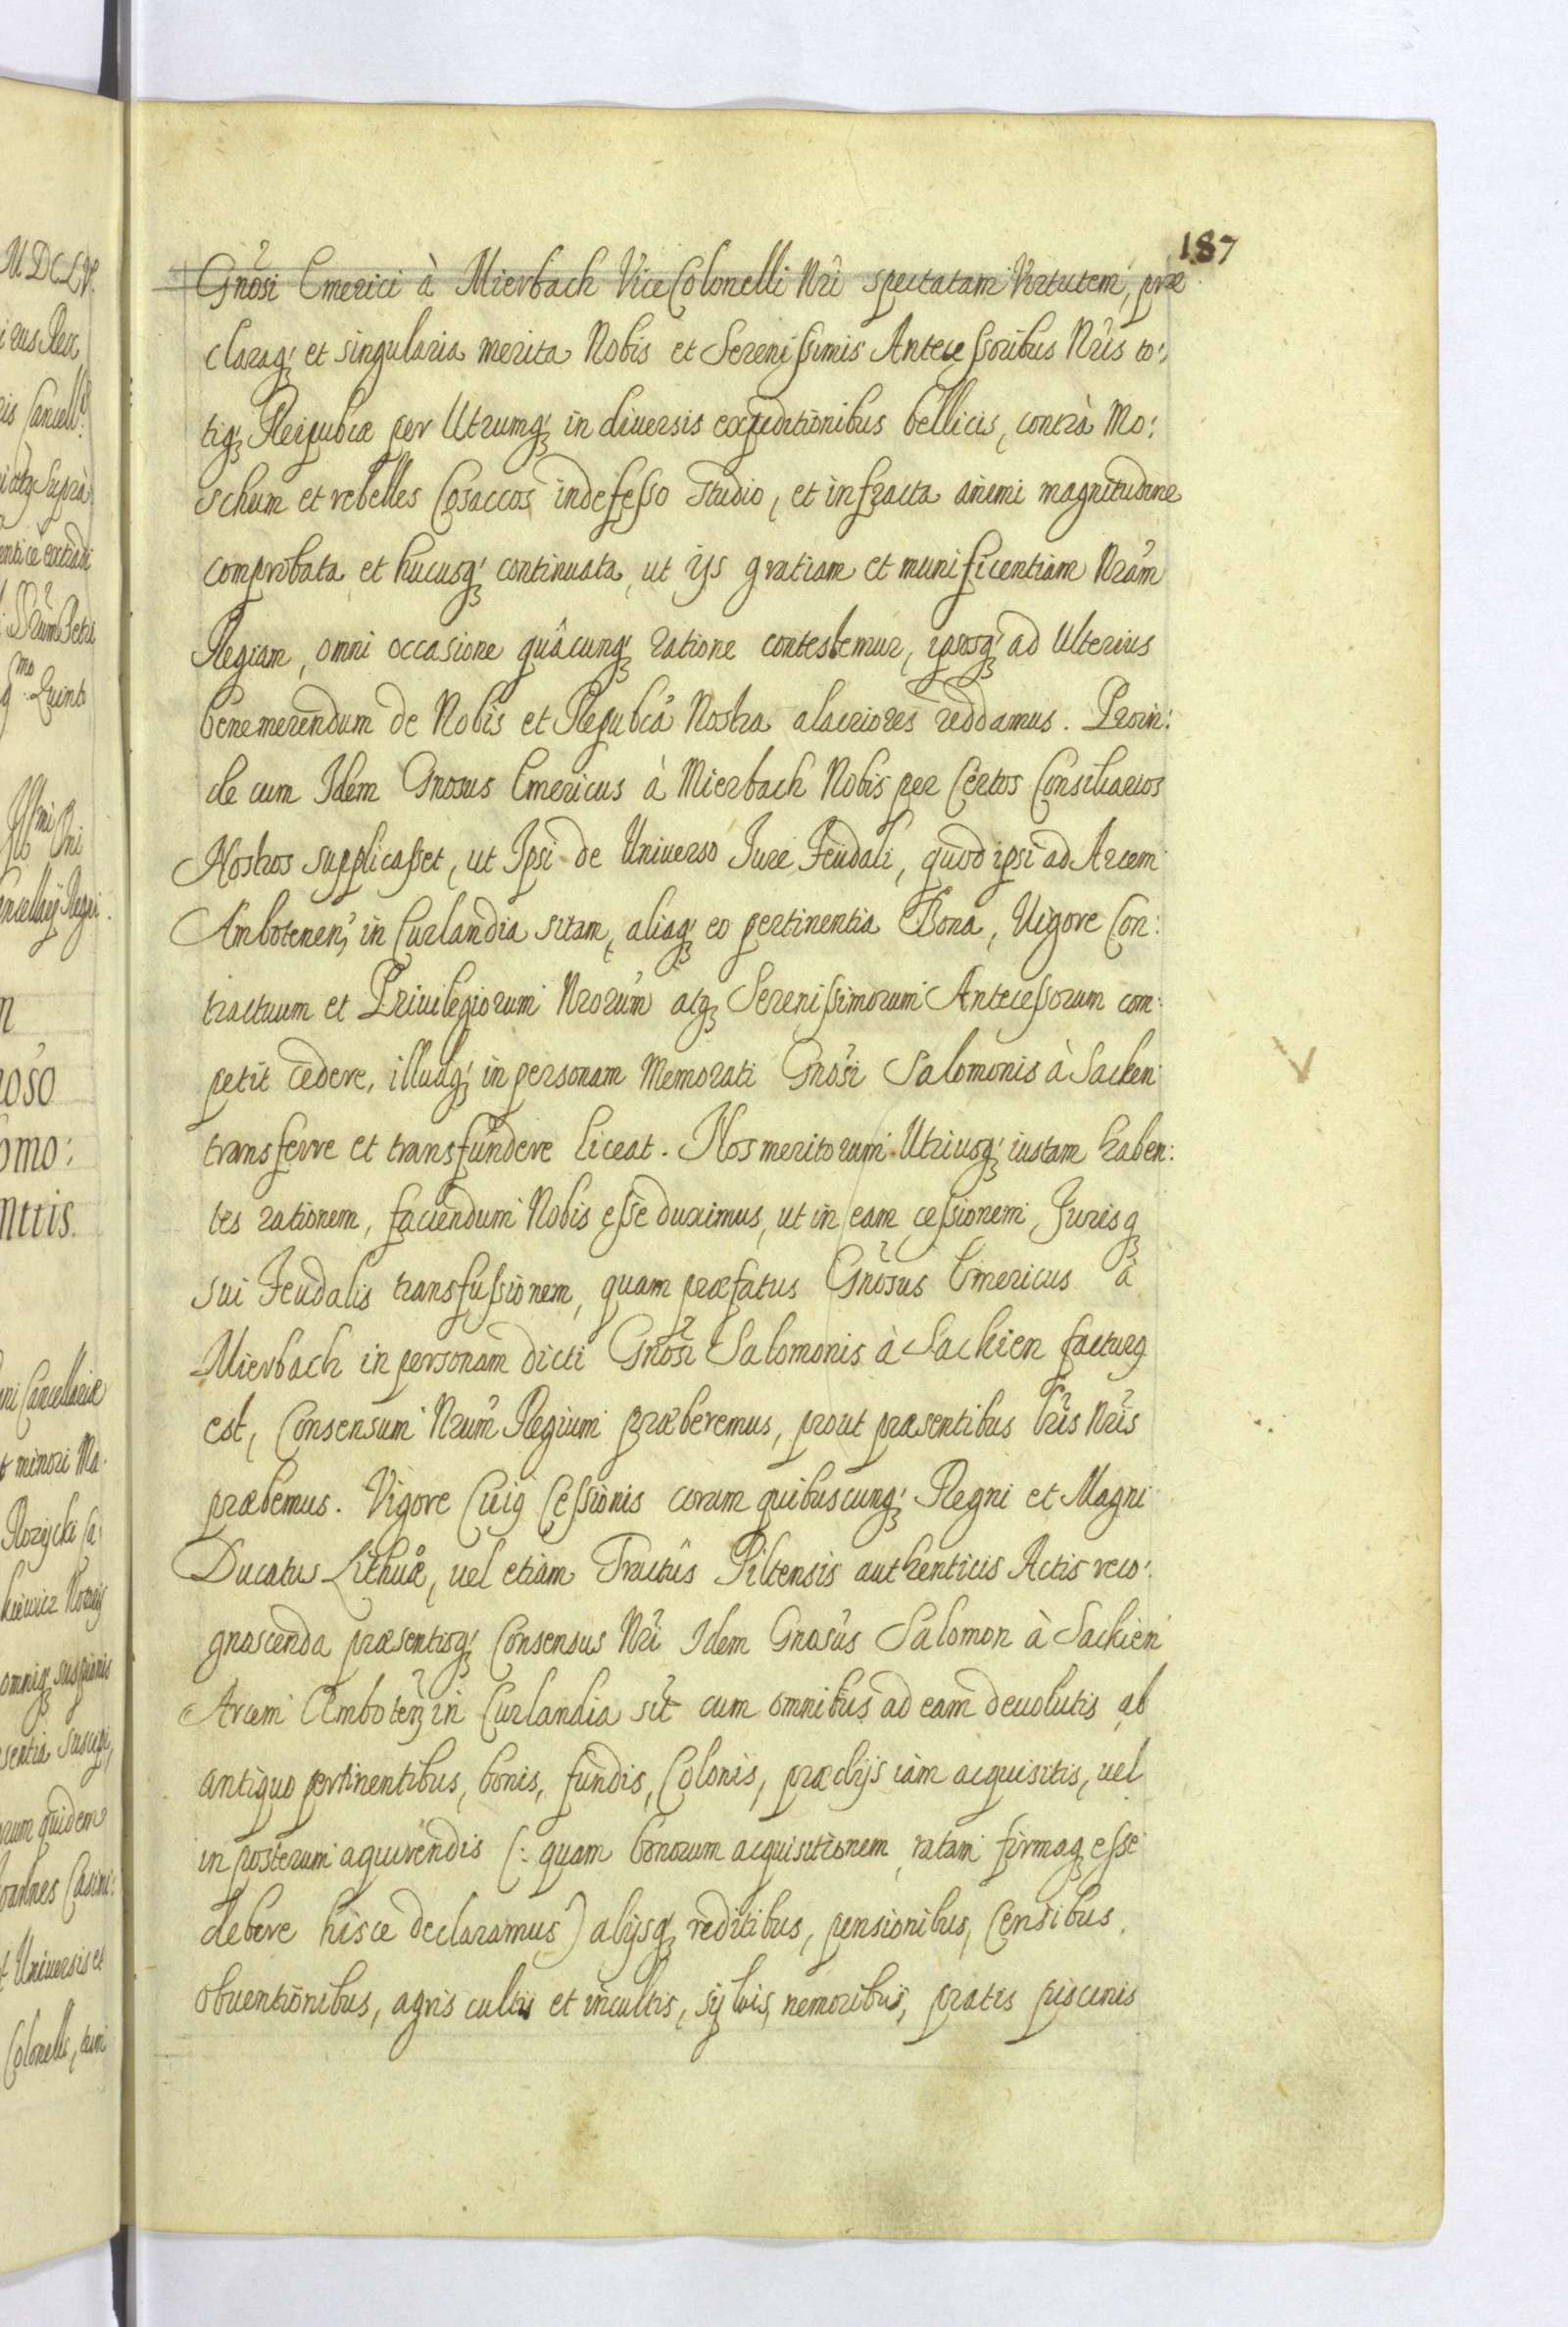 187
Gnosi Emerici à Mierbach Vice Colonelli Nri spectatam Virtutem, præ
claraq; et singularia merita Nobis et Serenissimis Antecessoribus Nris to:
tiq; Reipubcæ per Utrumq; in diversis expeditionibus bellicis, contrà Mo:
schum et rebelles Cosaccos indefesso studio, et infracta animi magnitudine
comprobata, et hucusq; continuata, ut ijs gratiam et munificentiam Nram
Regiam, omni occasione quâcunq; ratione contestemur, ipsosq; ad Ulterius
benemerendum de Nobis et Republca Nostra alacriores reddamus. Proin:
de cum Idem Gnosus Emericus à Mierbach Nobis per Certos Consiliarios
Nostros supplicasset, ut Ipsi de Universo Jure Feudali, quod ipsi ad Arcem
Ambotenen; in Curlandia sitam, aliaq; eo pertinentia Bona, Vigore Con:
tractuum et Privilegiorum Nrorum atq; Serenissimorum Antecessorum com:
petit cedere, illudq; in personam Memorati Gnosi Salomonis à Sacken
transferre et transfundere liceat. Nos meritorum Utriusq; iustam haben:
tes rationem, faciendum Nobis esse duximus, ut in eam cessionem, Jurisq
sui Feudalis transfussionem, quam præfatus Gnosus Emericus à
Mierbach in personam dicti Gnosi Salomonis à Sackien facturq
est, Consensum Nrum Regium præberemus, prout præsentibus lris Nris
præbemus. Vigore Cuiq Cessionis coram quibuscunq; Regni et Magni
Ducatus Lithuæ, vel etiam Tractûs Piltensis authenticis Actis reco:
gnoscenda præsentisq; Consensus Nri Idem Gnosus Salomon à Sackien
Arcem Amboten; in Curlandia sit cum omnibus ad eam devolutis ab
antiquo pertinentibus, bonis, fundis, Colonis, prædijs iam acquisitis, vel
in posterum aquirendis (: quam bonorum acquisitionem ratam firmaq; esse
debere hisce declaramus) alijsq; reditibus, pensionibus, Censibus
obventionibus, agris cultis et incultis, sylvis, nemoribus, pratis piscinis